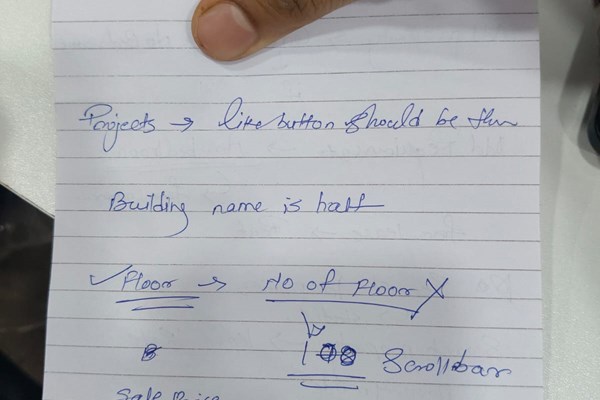 Projects → like button should be
Building name is half
✓ Floor → No of Floor X
Scrollbar
Sale Price